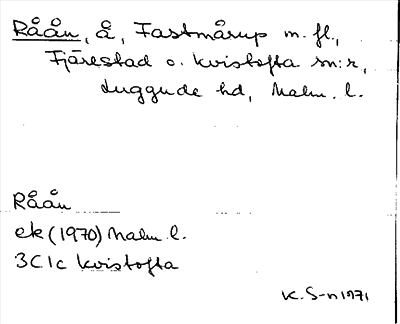 Råån, å, Fastmårup m. fl.,
Fjärestad o. Kvistofta sn:r,
Luggude hd, Malm. l.
Råån
ek (1970) Malm l.
3C1c Kvistofta
K. S-n 1971